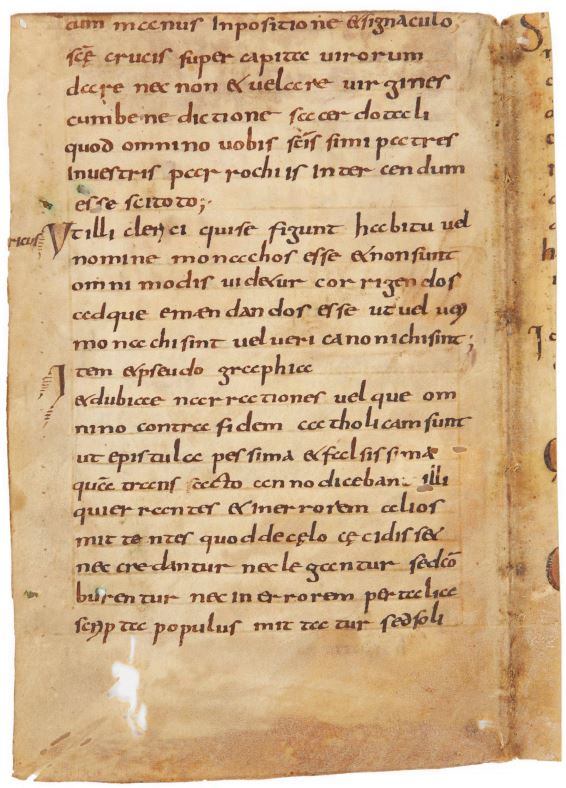 cum manus inpositione & signaculo
scę̄ crucis super capita virorum
dare nec non & uelare uirgines
cum benedictione sacerdotali
quod omnino uobis sc̄is simi patres
in uestris parrochiis inter cendum
esse scitoto;
ricus Ut illi clerici qui se figunt habitu uel
nomine monachos esse & non sunt
omni modis uid&ur corrigendos
adque emændandos esse ut uel
monachi sint uel ueri canonichi sint;
Item & pseudo graphia
& dubiae narrationes uel que om
nino contra fidem catholicam sunt
ut epistula pessima & falsissima
quā trans acto anno diceban illi
qui errantes & in errorem alios
mittentes quod de cęlo cęcidiss&
nec credantur nec legantur sed cō
burentur nec in errorem per talia
scripta populus mittatur sed soli